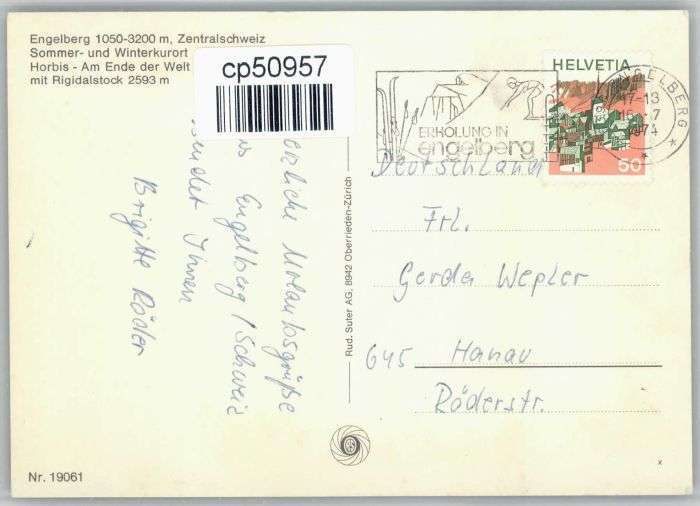 Engelberg 1050-3200 m, Zentralschweiz
Sommer- und Winterkurort
Horbis - Am Ende der Welt
mit Rigidalstock 2593 m
cp50957
HELVETIA
50
ENGELBERG
ERHOLUNG IN
engelberg
Urlaubsgrüße
Engelberg / Schweiz
sendet Ihnen
Brigitte Röder
Rud. Suter AG, 8942 Oberrieden-Zürich
Deutschland
Frl.
Gerda Wepler
645 Hanau
Röderstr.
Nr. 19061
x